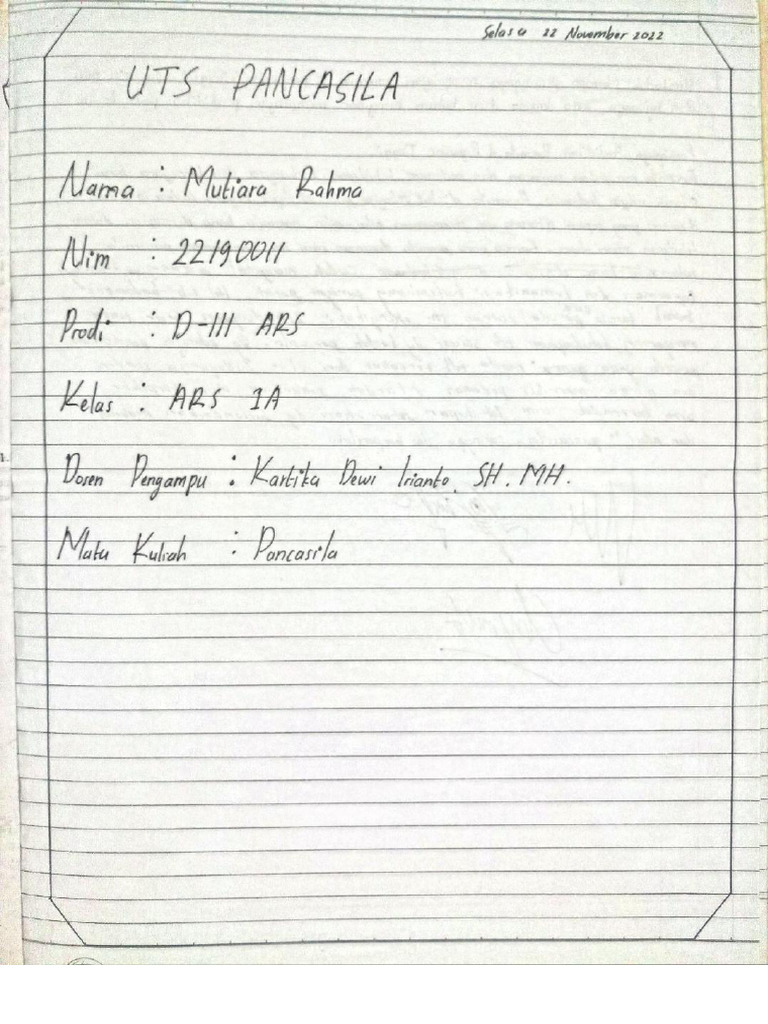 Selasa 22 November 2022
UTS PANCASILA
Nama : Mutiara Rahma
Nim : 22190011
Prodi : D-III ARS
Kelas : ARS 1A
Dosen Pengampu : Kartika Dewi Irianto, SH. MH.
Mata Kuliah : Pancasila